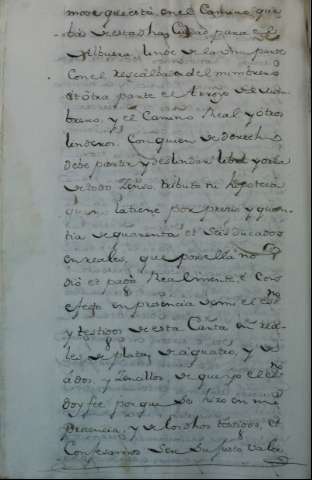 mos que está en el Camino que
ba de estas has
Albuera linde de la una parte
Con el del mimbreño
et ótra parte el Arroyo del mim
breno, y el Camino Real y otros
linderos. Con quien de derecho
debe partir y deslindar libre y
de todo Zenso, tributo ni hipoteca
que tiene por precio y quan-
tia de quarenta et seis ducados
en reales, que por ella no
dió et pagó Realmente, é Con
efecto en presencia de mi el es.no
y testigos de esta Carta en rea-
les de plata de á quatro, y de
á dos, y Zenzillos de que yo el es.no
doy fee porque se hizo en mi
presencia, y de los dhos testigos, et
Confesamos Ser Su justo Valor